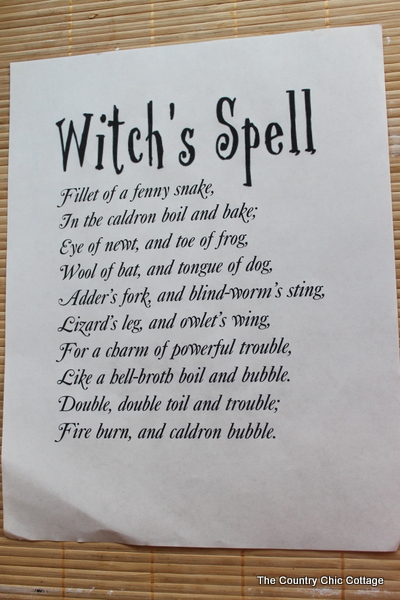 Witch's Spell
Fillet of a fenny snake,
In the caldron boil and bake;
Eye of newt, and toe of frog,
Wool of bat, and tongue of dog,
Adder's fork, and blind-worm's sting,
Lizard's leg, and owlet's wing,
For a charm of powerful trouble,
Like a hell-broth boil and bubble.
Double, double toil and trouble;
Fire burn, and caldron bubble.
The Country Chic Cottage